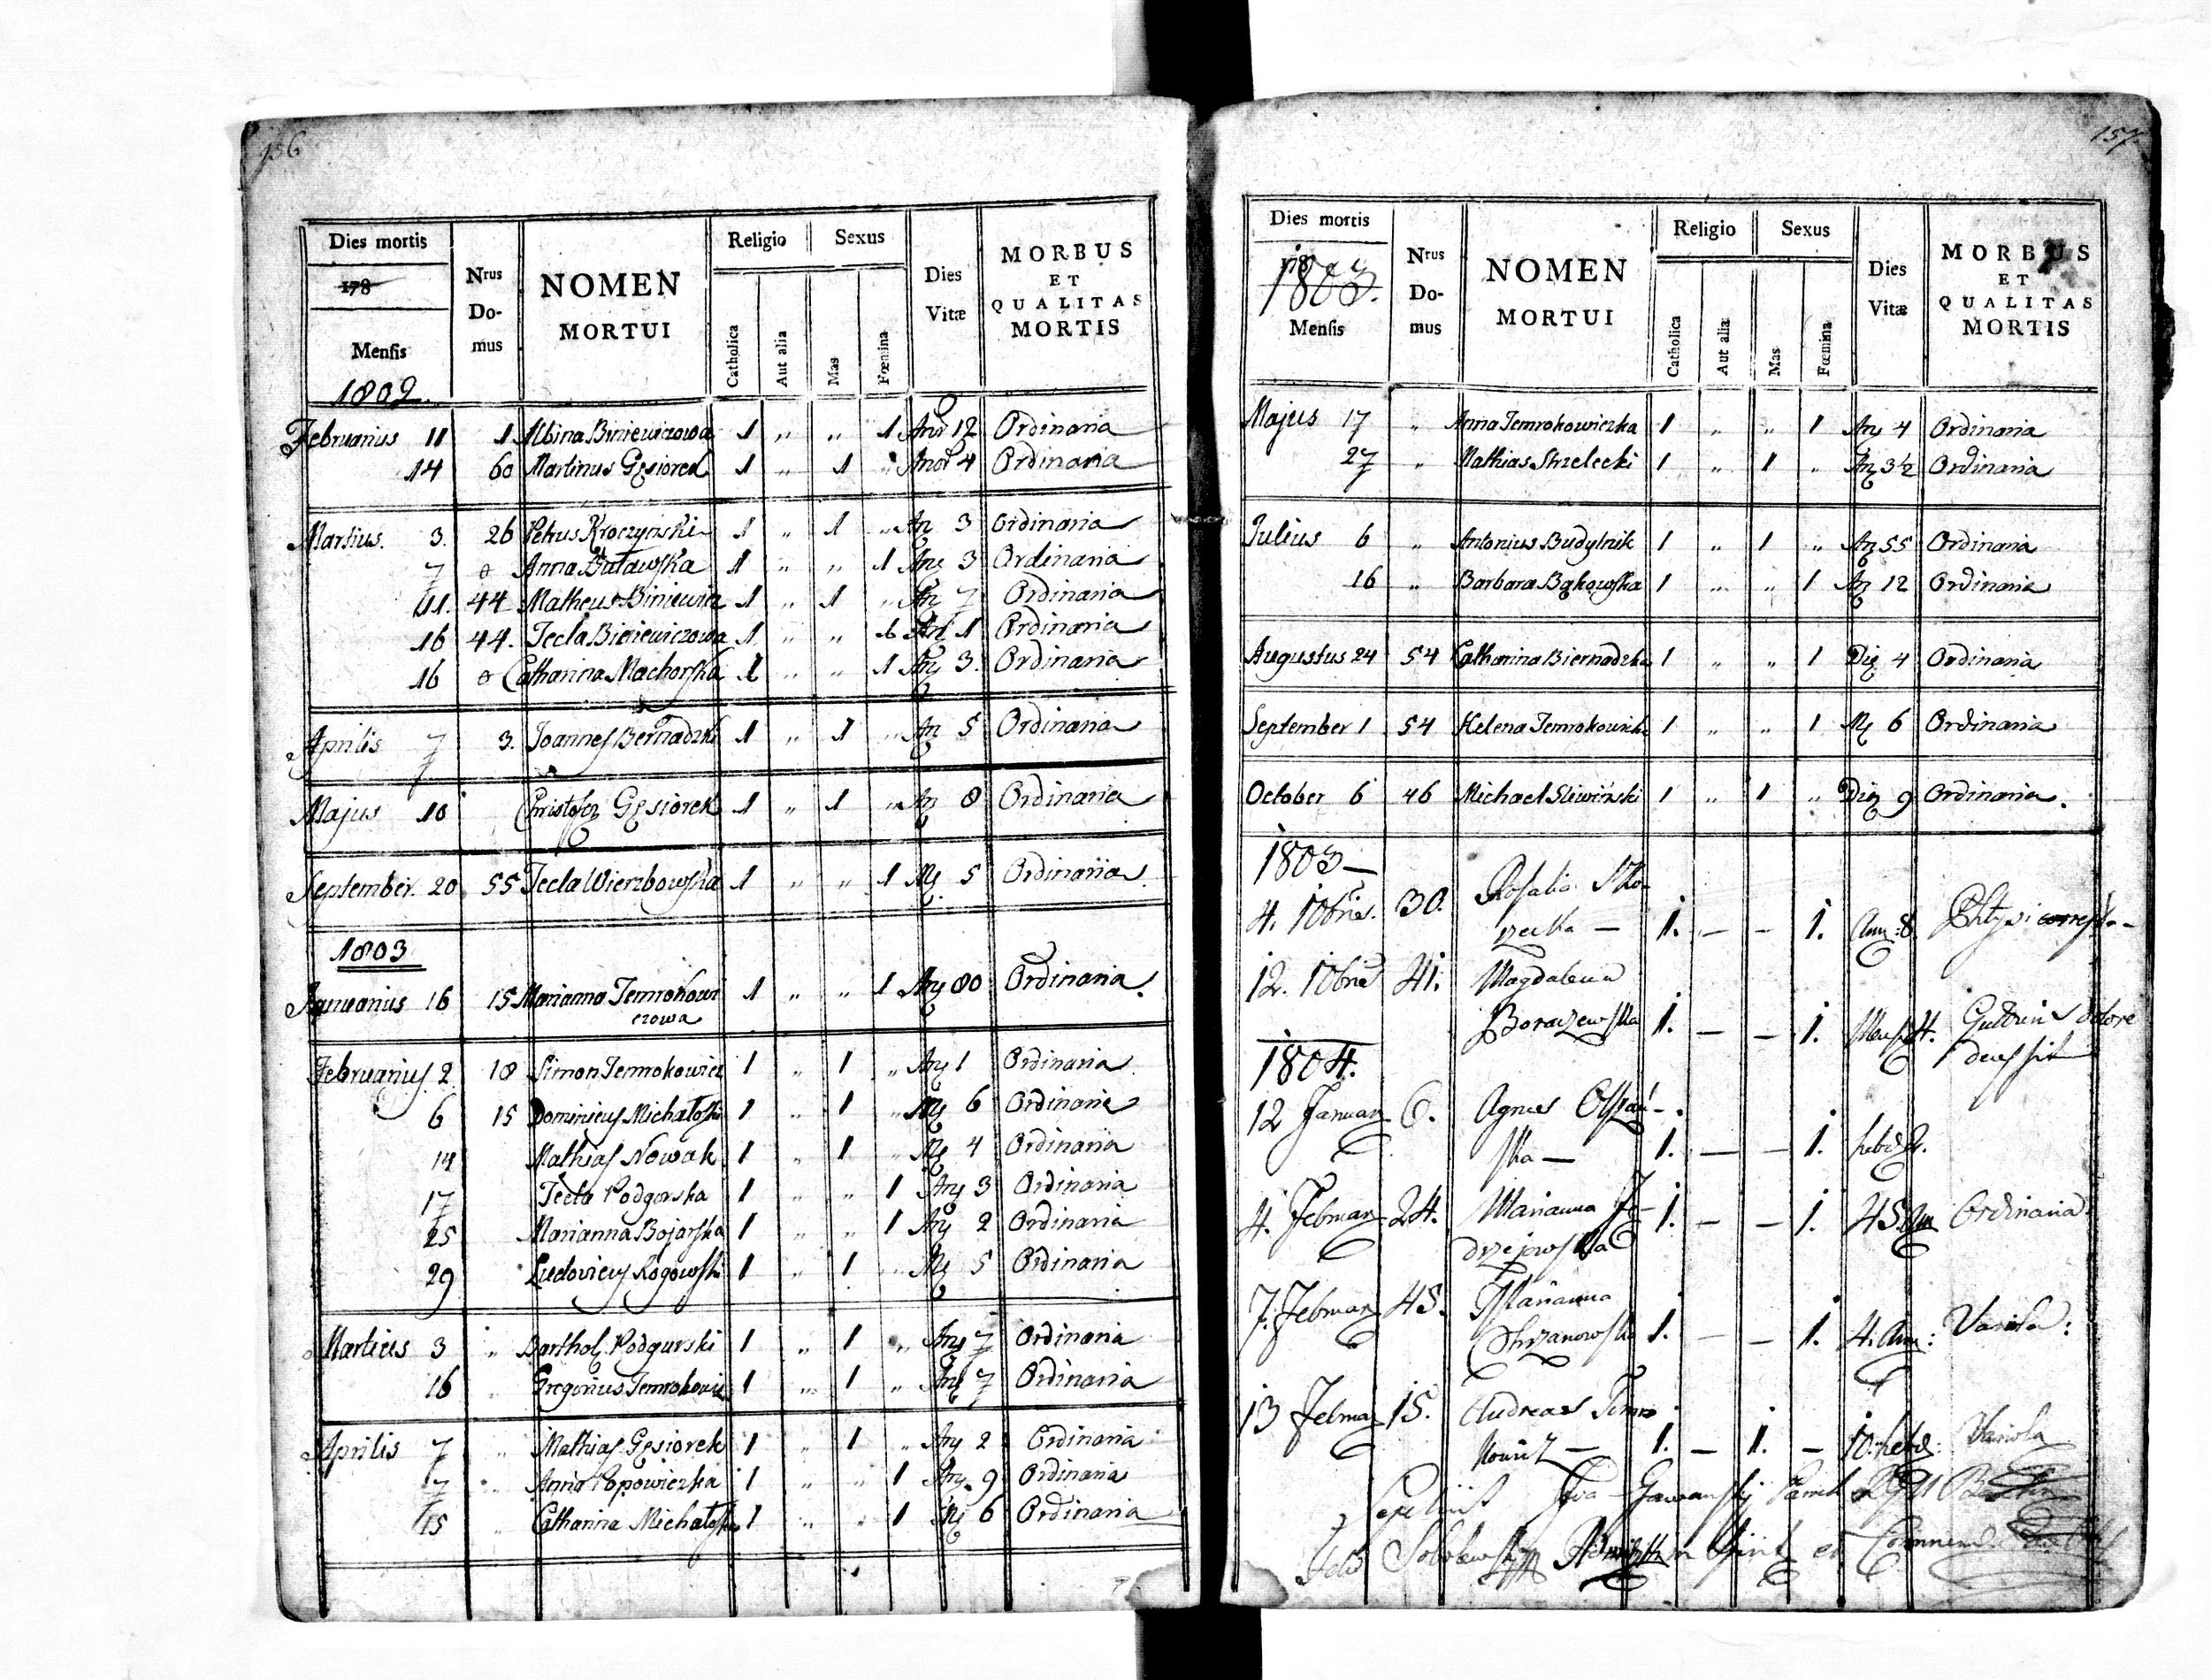 156
Dies mortis
178
Mensis
1802.
Nrus Domus
NOMEN MORTUI
Religio
Catholica
Aut alia
Sexus
Mas
Fœmina
Dies Vitæ
MORBUS ET QUALITAS MORTIS
Februarius 11 1 Albina Biniewiczowa 1 " " 1 Anor 12 Ordinaria
14 60 Martinus Gęsiorek 1 " 1 " Anor 4 Ordinaria
Martius. 3. 26 Petrus Kroczynski 1 " 1 " An 3 Ordinaria
7 o Anna Butawska 1 " " 1 Any 3 Ordinaria
11. 44 Matheus Biniewicz 1 " 1 " An 7 Ordinaria
16 44. Tecla Biniewiczowa 1 " " 1 An 1 Ordinaria
16 o Catharina Machorska 1 " " 1 Any 3. Ordinaria
Aprilis 7 3. Joannes Bernadzki 1 " 1 " An 5 Ordinaria
Majus 10 Christofor Gęsiorek 1 " 1 " An 8 Ordinaria
September. 20 55 Tecla Wierzbowska 1 " " 1 My 5 Ordinaria
1803
Januarius 16 15 Marianna Temrokowi 1 " " 1 Any 80 Ordinaria.
czowa
Februarius 2 18 Simon Temrokowicz 1 " 1 " Any 1 Ordinaria
6 15 Dominicus Michałoski 1 " 1 " My 6 Ordinaria
14 Mathias Nowak 1 " 1 " My 4 Ordinaria
17 Tecla Podgorska 1 " " 1 Any 3 Ordinaria
25 Marianna Bojarska 1 " " 1 Any 2 Ordinaria
29 Ludovicus Rogowski 1 " 1 " My 5 Ordinaria
Martius 3 " Barthol. Podgurski 1 " 1 " Any 7 Ordinaria
16 " Gregorius Temrokowicz 1 " 1 " Any 7 Ordinaria
Aprilis 7 " Mathias Gęsiorek 1 " 1 " Any 2 Ordinaria
7 " Anna Popowiczka 1 " " 1 Any 9 Ordinaria
15 " Catharina Michałoska 1 " " 1 My 6 Ordinaria
157
Dies mortis
178
1803.
Mensis
Nrus Domus
NOMEN MORTUI
Religio
Catholica
Aut alia
Sexus
Mas
Fœmina
Dies Vitæ
MORBUS ET QUALITAS MORTIS
Majus 17 " Anna Temrokowiczka 1 " " 1 Any 4 Ordinaria
27 " Mathias Strzelecki 1 " 1 " An 3½ Ordinaria
Julius 6 " Antonius Budytnik 1 " 1 " An 55 Ordinaria
16 " Barbara Bąkowska 1 " " 1 An 12 Ordinaria
Augustus 24 54 Catharina Biernadzka 1 " " 1 Die 4 Ordinaria
September 1 54 Helena Temrokowiczka 1 " " 1 My 6 Ordinaria
October 6 46 Michael Sliwiński 1 " 1 " Die 9 Ordinaria.
1803 —
4. 10bris. 30. Rosalia Sko-
rzecka — 1. — — 1. Ann: 8
12. 10bris 41. Magdalena
Boraczewska 1. — — 1. Mens: 4. Gutturis dolore
1804.
12 Januar 6. Agnes Olszań-
ska — 1. — — 1. hebd: 2.
4. Februar 24. Marianna Je- 1. — — 1. 45. Ann Ordinaria.
drzejowska
7. Februar 45. Marianna
Chrzanowska 1. — — 1. 4. Ann: Variola:
13 Februar 15. Andreas Temro
kowicz — 1. — 1. — 10. hebd: Variola
Sepelivit
Sobolewski